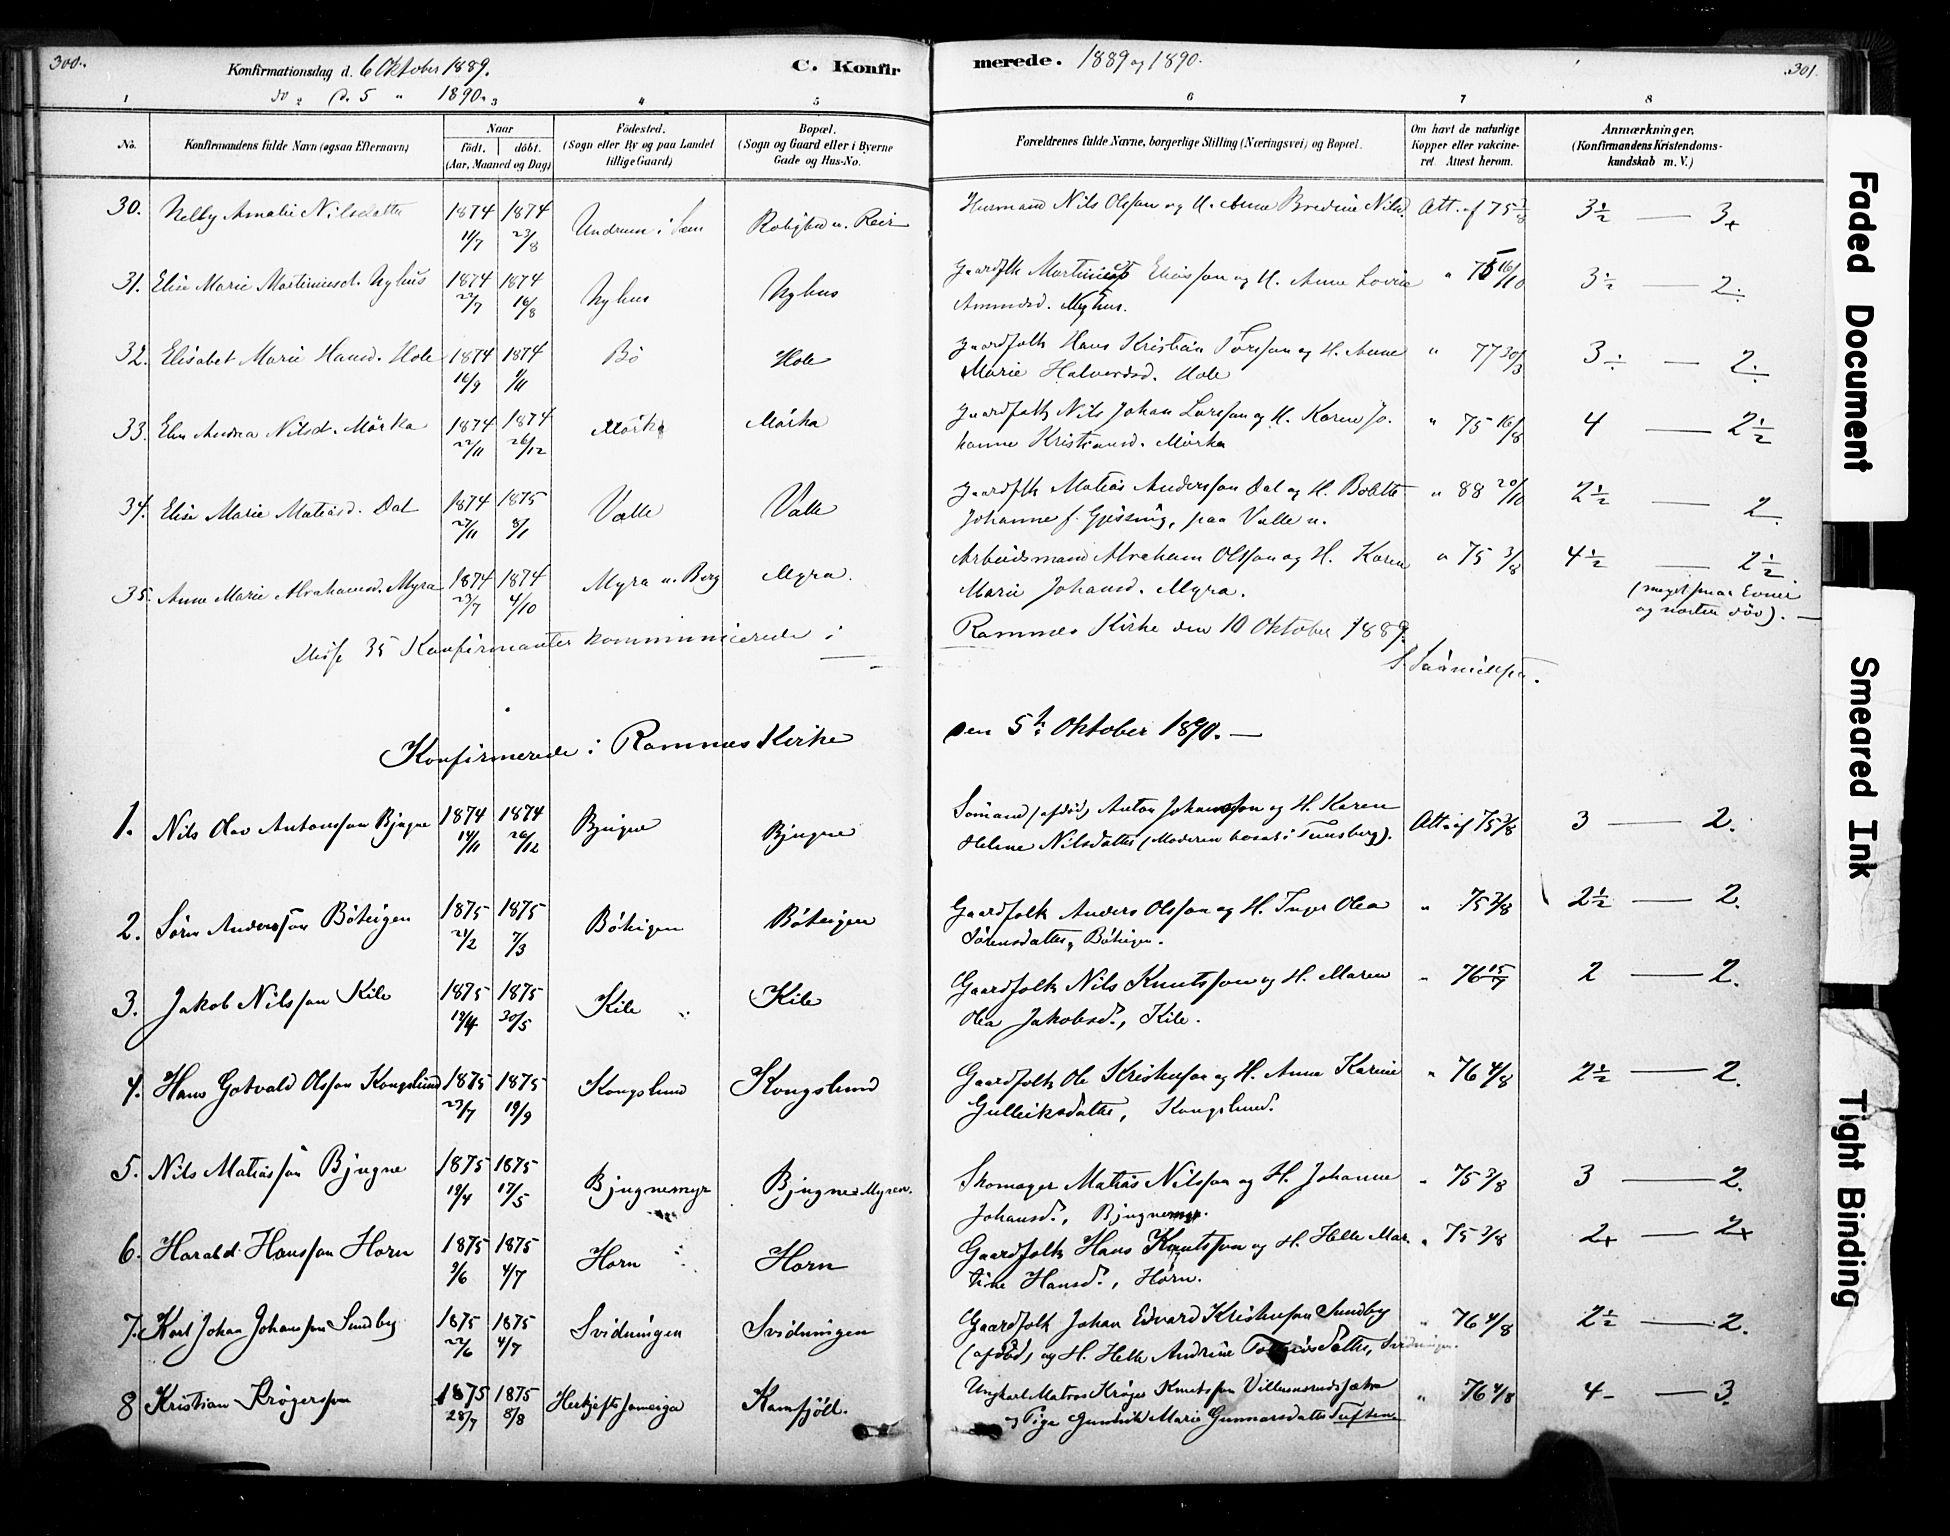 300.
Konfirmationsdag d. 6 Oktober 1889.
do d. 5 " 1890.
C. Konfir
merede. 1889 og 1890.
301.
1 2 3 4 5 6 7 8
No.
Konfirmandens fulde Navn (ogsaa Efternavn)
Naar
født. døbt.
(Aar, Maaned og Dag)
Fødested.
(Sogn eller By og paa Landet
tillige Gaard)
Bopæl.
(Sogn og Gaard eller i Byerne
Gade og Hus-No.
Forældrenes fulde Navne, borgerlige Stilling (Næringsvei) og Bopæl.
Om havt de naturlige
Kopper eller vakcine-
ret. Attest herom.
Anmærkninger.
(Konfirmandens Kristendoms-
kundskab m. V.)
30. Nelly Amalie Nilsdatte 1874 1874 Undrum i Sem Husmand Nils Olsson og H. Anne Bredine Nilsd. Att. af 75 3/8 3½ — 3+
11/7 23/8
31. Elise Marie Martiniusd. Nyhus 1874 1874 Nyhus Nyhus Gaardflk Martinius Eliasson og H. Anne Lovise " 75 16/10 3½ — 2÷
27/7 16/8 Nyhus.
32. Elisabet Marie Hansd. Hole 1874 1874 Bö Hole Gaardfolk Hans Kristian Torsson og H. Anne " 77 30/3 3÷ — 2÷
16/9 1/11 Marie Halvordsd. Hole
33. Elen Andrea Nilsd. Mörka 1874 1874 Mörka Mörka Gaardfolk Nils Johan Larsson og H. Karen Jo- " 75 16/8 4 — 2½
22/11 26/12 hanne Kristiansd. Mörka
34. Elise Marie Matiasd. Dal 1874 1875 Valle Valle Gaardflk Matias Andersson Dal og H. Bolette " 88 20/10 2½ — 2.
27/11 8/1 Johanne f. Gjessing, paa Valle u.
35. Anne Marie Abrahamsd. Myra 1874 1874 Myra u. Berg Myra. Arbeidsmand Abraham Olsson og H. Karen " 75 3/8 4½ — 2½.
23/7 4/10 Marie Johansd. Myra. (meget smaa Evner
og næsten döv). —
Disse 35 Konfirmanter kommunicerede i Ramnes Kirke den 10 Oktober 1889.
Konfirmerede i Ramnes Kirke den 5te Oktober 1890. —
1. Nils Olav Antonsson Bjugne 1874 1874 Bjugne Bjugne Sömand (afdöd) Anton Johansson og H. Karen Att. af 75 3/8 3 — 2.
14/11 26/12 Helene Nilsdatter (Moderen bosat i Tunsberg).
2. Sörn Andersson Böteigen 1875 1875 Böteigen Böteigen Gaardfolk Anders Olsson og H. Inger Olea " 75 3/8 2½ — 2.
21/2 7/3 Sörensdatter, Böteigen.
3. Jakob Nilsson Kile 1875 1875 Kile Kile Gaardfolk Nils Knutsson og H. Maren " 76 15/7 2 — 2.
19/4 30/5 Olea Jakobsd., Kile.
4. Hans Gotvald Olsson Kongslund 1875 1875 Kongslund Kongslund Gaardfolk Ole Kristensson og H. Anne Karine " 76 4/8 2½ — 2.
23/7 19/9 Gulleiksdatter, Kongslund.
5. Nils Matiasson Bjugne 1875 1875 Bjugnemyr Bjugne Myren. Skomager Matias Nilsson og H. Johanne " 75 3/8 3 — 2.
19/4 17/5 Johansd., Bjugnemyr.
6. Harald Hansson Horn 1875 1875 Horn Horn Gaardfolk Hans Knutsson og H. Helle Mar- " 75 3/8 2+ — 2+
3/6 4/7 tine Hansd., Horn.
7. Karl Johan Johansson Sundby 1875 1875 Svidningen Svidningen Gaardfolk Johan Edvard Kristensson Sundby " 76 4/8 2½ — 2.
22/6 4/7 (afdöd) og H. Helle Andrine Svidningen.
8 Kristian Krögersson 1875 1875 Kamfjöld. Ungkarl Matros Kröger Knutsson " 76 4/8 4- — 3.
28/7 8/8 og Pige Gunhild Marie Gunnarsdatter Tuften
Faded Document
Smeared Ink
Tight Binding